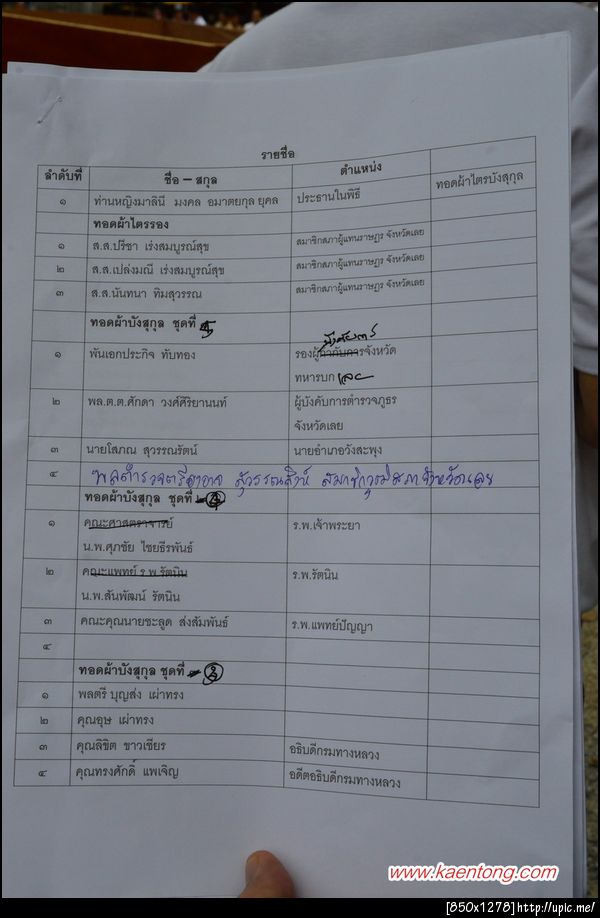 รายชื่อ
ลำดับที่ ชื่อ – สกุล ตำแหน่ง
ทอดผ้าไตรบังสุกุล
๑ ท่านหญิงมาลินี มงคล อมาตยกุล ยุคล ประธานในพิธี
ทอดผ้าไตรรอง
๑ ส.ส.ปรีชา เร่งสมบูรณ์สุข สมาชิกสภาผู้แทนราษฎร จังหวัดเลย
๒ ส.ส.เปล่งมณี เร่งสมบูรณ์สุข สมาชิกสภาผู้แทนราษฎร จังหวัดเลย
๓ ส.ส.นันทนา ทิมสุวรรณ สมาชิกสภาผู้แทนราษฎร จังหวัดเลย
ทอดผ้าบังสุกุล ชุดที่
๑ พันเอกประกิจ ทับทอง รองผู้กำกับการจังหวัด
ทหารบก เลย
๒ พล.ต.ต.ศักดา วงศ์ศิริยานนท์ ผู้บังคับการตำรวจภูธร
จังหวัดเลย
๓ นายโสภณ สุวรรณรัตน์ นายอำเภอวังสะพุง
๔ พลตำรวจตรี สุวรรณสิงห์ สมาชิกวุฒิสภาจังหวัดเลย
ทอดผ้าบังสุกุล ชุดที่
๑ คณะศาสตราจารย์ ร.พ.เจ้าพระยา
น.พ.ศุภชัย ไชยธีรพันธ์
๒ คณะแพทย์ ร.พ.รัตนิน ร.พ.รัตนิน
น.พ.สันพัฒน์ รัตนิน
๓ คณะคุณนายชะลูด ส่งสัมพันธ์ ร.พ.แพทย์ปัญญา
๔
ทอดผ้าบังสุกุล ชุดที่
๑ พลตรี บุญส่ง เผ่าทรง
๒ คุณอุษ เผ่าทรง
๓ คุณลิขิต ขาวเธียร อธิบดีกรมทางหลวง
๔ คุณทรงศักดิ์ แพเจิญ อดีตอธิบดีกรมทางหลวง
www.kaentong.com
[850x1278]http://upic.me/